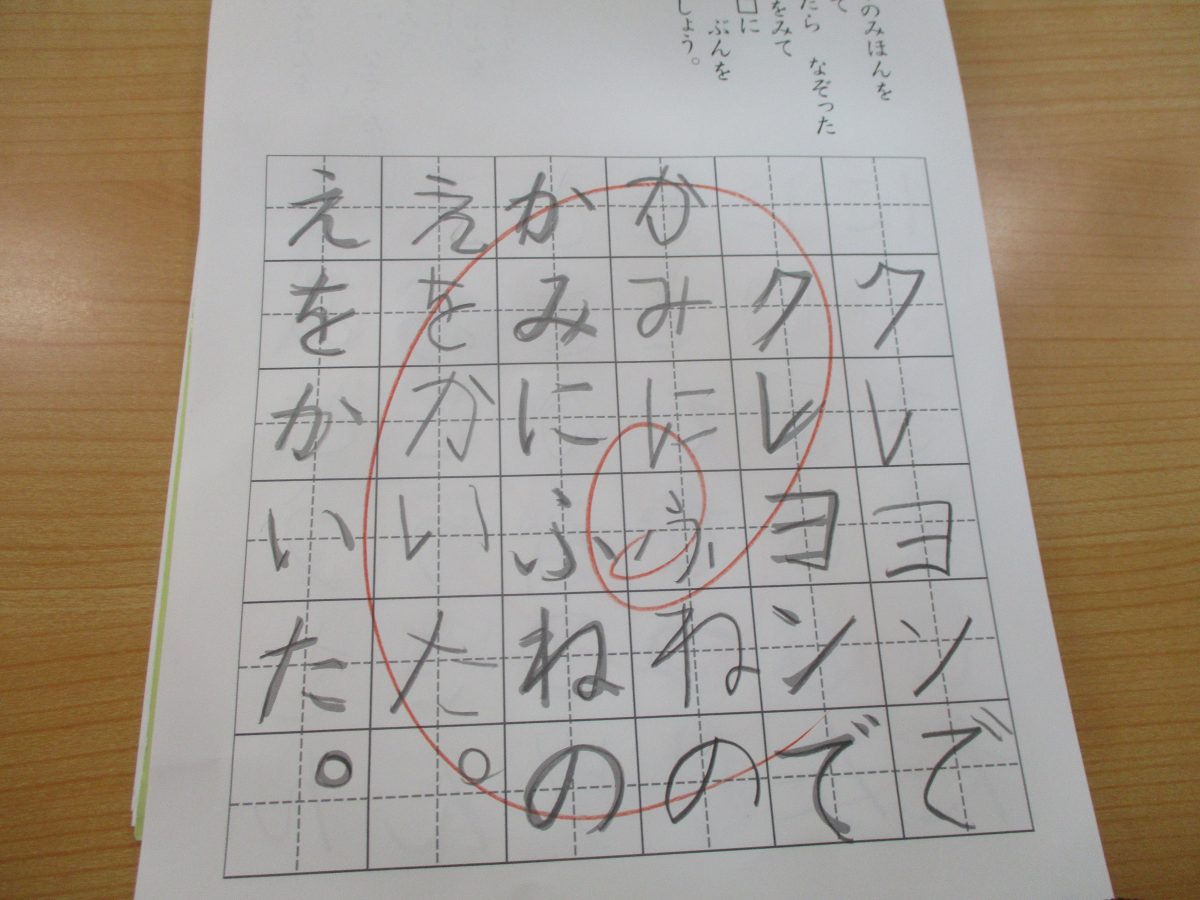 のみほんを
て
たら なぞった
をみて
□に
ぶんを
しょう。
クレヨンで
クレヨンで
かみにふねの
かみにふねの
えをかいた。
えをかいた。